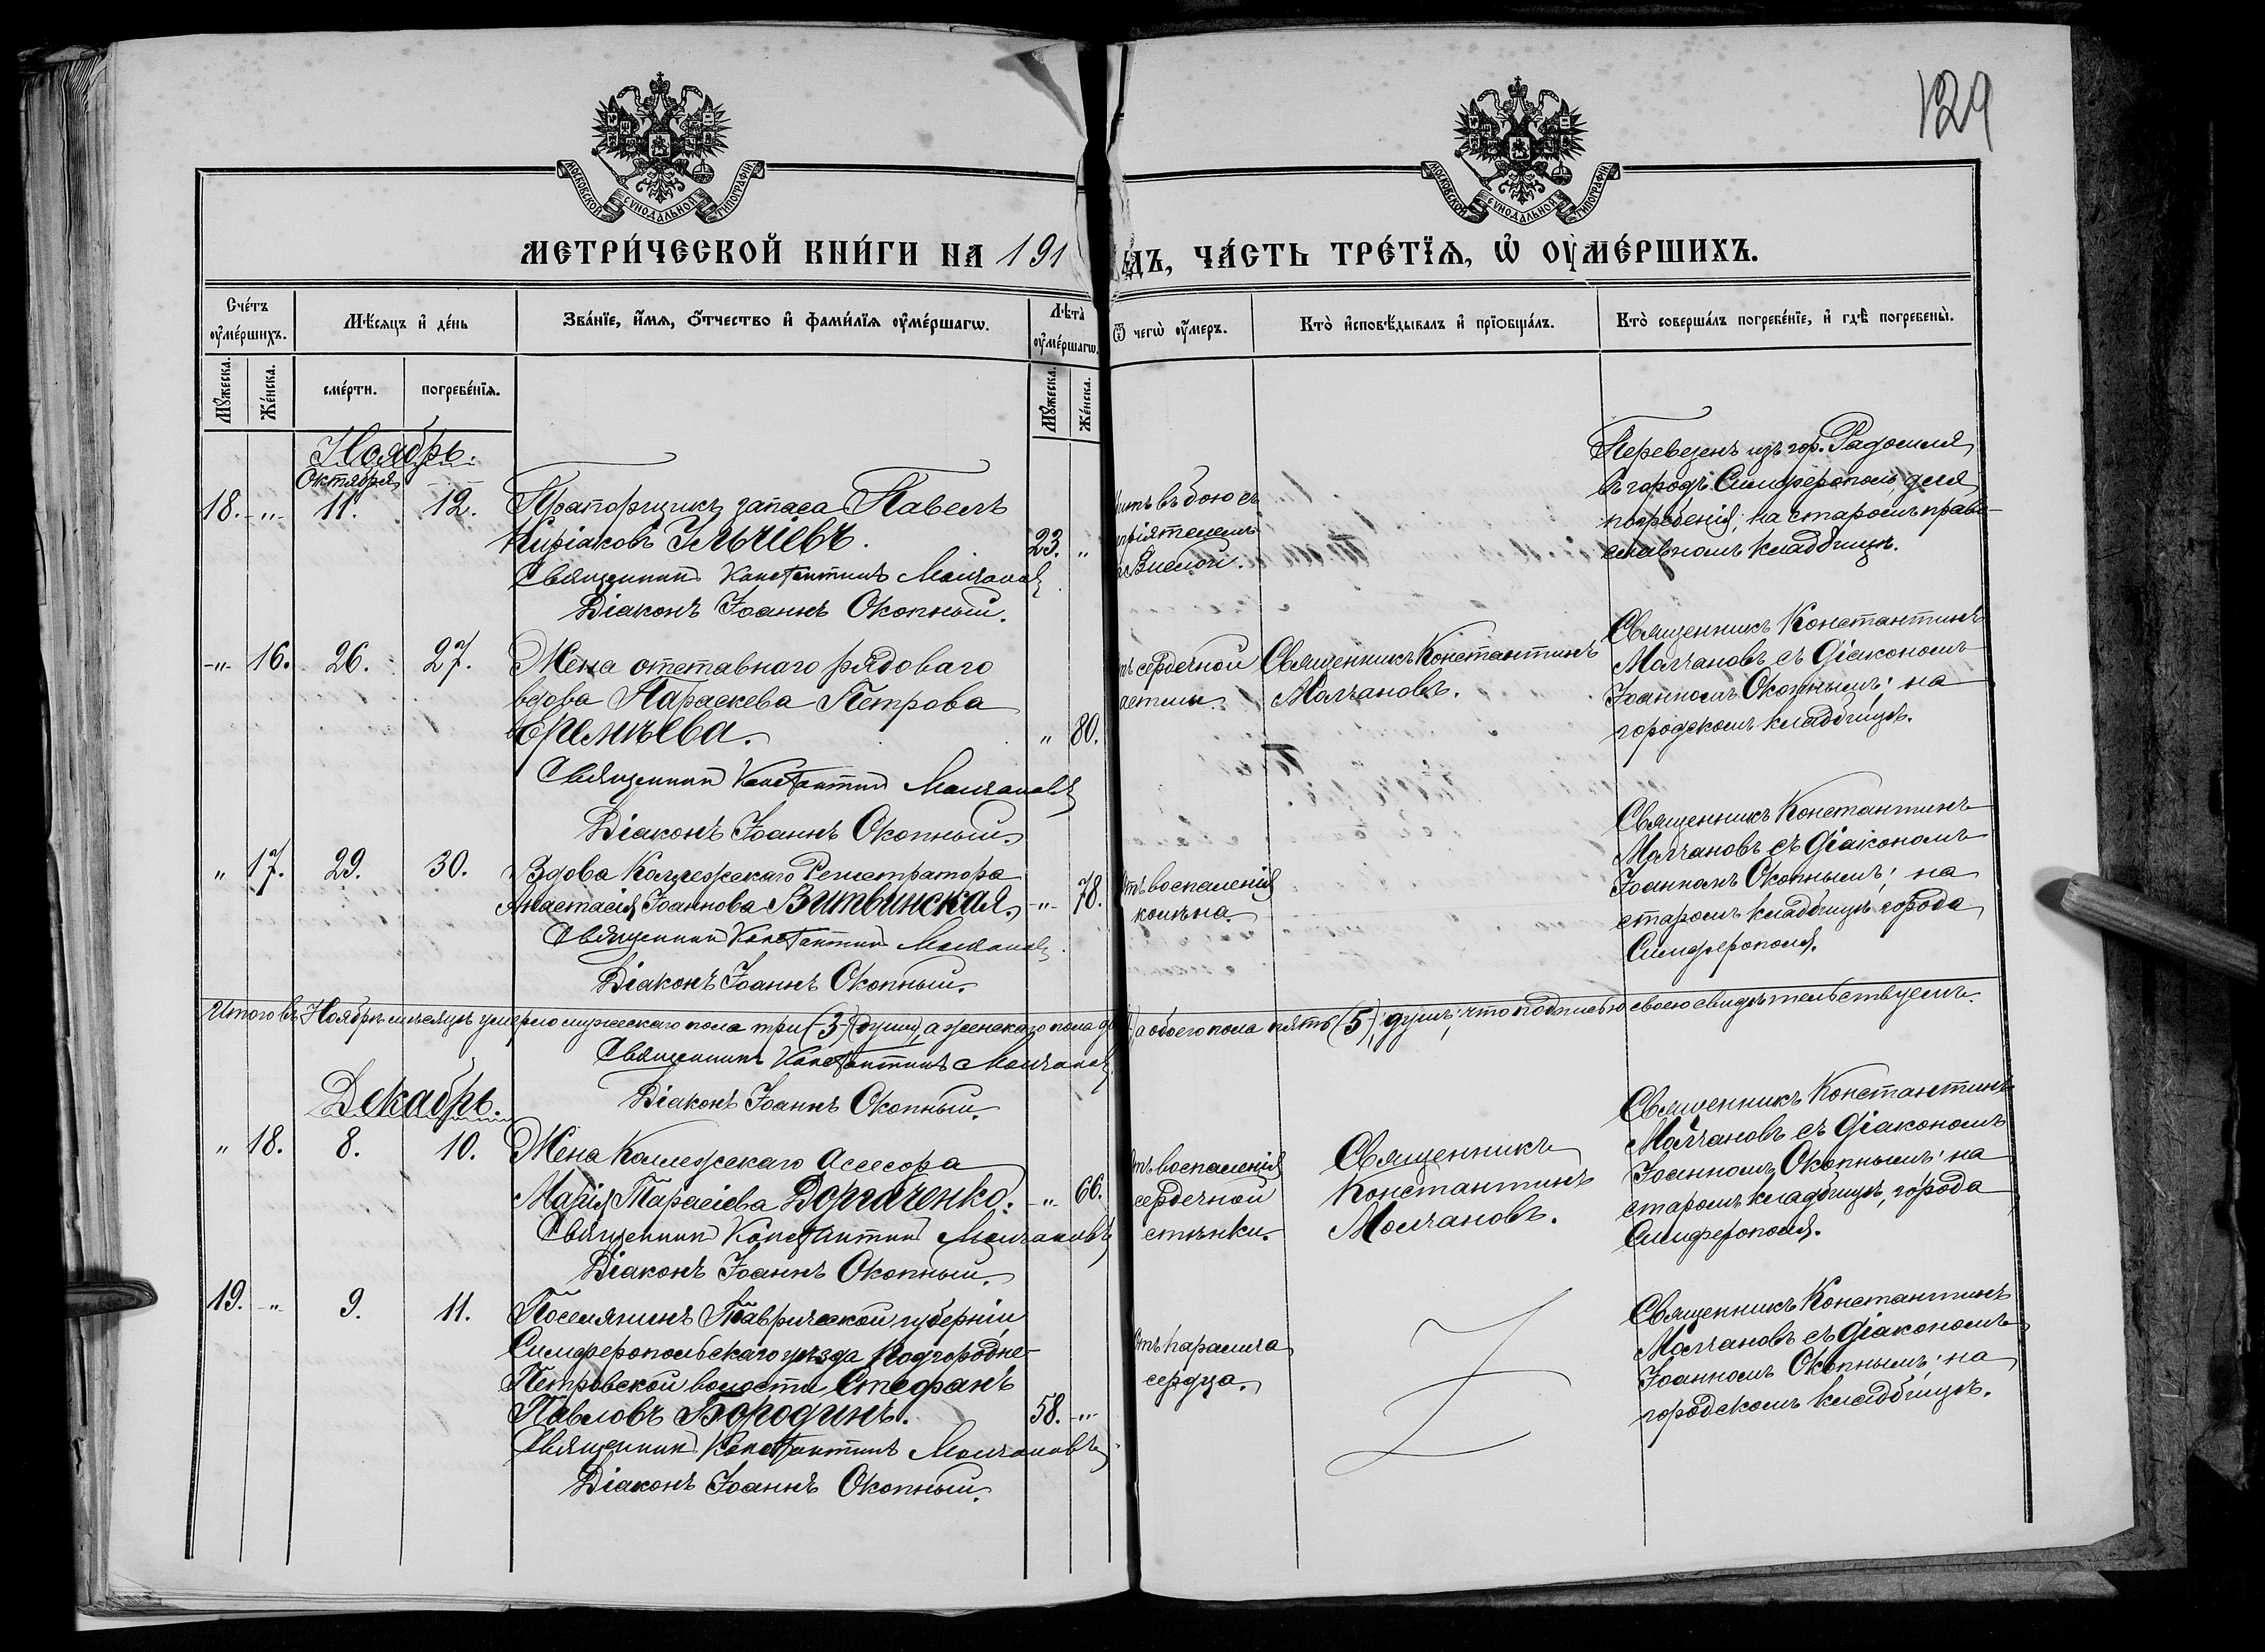 129
МОСКОВСКОЙ СѴНОДАЛЬНОЙ ТИПОГРАФІИ
МОСКОВСКОЙ СѴНОДАЛЬНОЙ ТИПОГРАФІИ
МЕТРИ́ЧЕСКОЙ КНИ́ГИ НА 191
ДЪ, ЧА́СТЬ ТРЕ́ТЇѦ, Ѡ҆ ОУ҆МЕ́РШИХЪ.
Сче́тъ оу҆ме́ршихъ.
Мѣ́сяцъ и҆ де́нь
Зва́нїе, и҆́мѧ, ѻ҆́тчество и҆ фами́лїѧ оу҆ме́ршагѡ.
Лѣта̀ оу҆ме́ршагѡ.
Ѿ чегѡ̀ оу҆́меръ.
Кто̀ и҆сповѣ́дывалъ и҆ прїѻбща́лъ.
Кто̀ соверша́лъ погребе́нїе, и҆ гдѣ̀ погребены̀.
Мꙋ́жеска.
Же́нска.
сме́рти.
погребе́нїѧ.
Мꙋ́жеска.
Же́нска.
Ноябрь.
Октября
18. -"- 11. 12. Прапорщикъ запаса Павелъ
Киріаковъ Ильчіевъ. 23. "
Священникъ Константинъ Молчановъ
Діаконъ Іоаннъ Окопный.
въ бою съ
пріятелемъ
Вислой.
Перевезенъ изъ гор. Радомля
въ городъ Симферополь, для
погребенія, на старомъ право-
славномъ кладбищѣ.
-"- 16. 26. 27. Жена отставнаго рядоваго
вдова Параскева Петрова
Еремѣева. " 80.
Священникъ Константинъ Молчановъ
Діаконъ Іоаннъ Окопный.
сердечной
астмы.
Священникъ Константинъ
Молчановъ.
Священникъ Константинъ
Молчановъ съ діакономъ
Іоанномъ Окопнымъ; на
городскомъ кладбищѣ.
" 17. 29. 30. Вдова Коллежскаго Регистратора
Анастасія Іоаннова Витвинская. -"- 78.
Священникъ Константинъ Молчановъ
Діаконъ Іоаннъ Окопный.
Отъ воспаленія
колѣна.
Священникъ Константинъ
Молчановъ съ діакономъ
Іоанномъ Окопнымъ; на
старомъ кладбищѣ города
Симферополя.
Итого въ Ноябрѣ мѣсяцѣ умерло мужескаго пола три (-3-) души, а женскаго пола а обоего пола пять (5) душъ; что подписью своею свидѣтельствуемъ.
Священникъ Константинъ Молчановъ
Діаконъ Іоаннъ Окопный.
Декабрь.
" 18. 8. 10. Жена Коллежскаго Ассесора
Марія Тарасіева Доргаченко. -"- 66.
Священникъ Константинъ Молчановъ
Діаконъ Іоаннъ Окопный.
Отъ воспаленія
сердечной
стѣнки.
Священникъ
Константинъ
Молчановъ.
Священникъ Константинъ
Молчановъ съ діакономъ
Іоанномъ Окопнымъ; на
старомъ кладбищѣ, города
Симферополя.
19. -"- 9. 11. Поселянинъ Таврической губерніи
Симферопольскаго уѣзда Подгородне-
Петровской волости Стефанъ
Павловъ Бородинъ. 58. -"-
Священникъ Константинъ Молчановъ
Діаконъ Іоаннъ Окопный.
Отъ паралича
сердца.
Священникъ Константинъ
Молчановъ съ діакономъ
Іоанномъ Окопнымъ; на
городскомъ кладбищѣ.